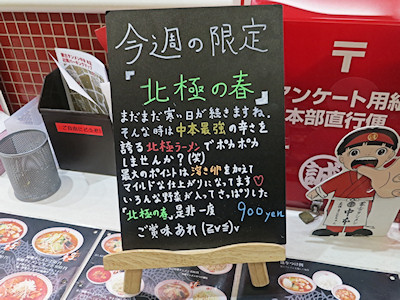 今週の限定
『北極の春』
まだまだ寒い日が続きますね。
そんな時は中本最強の辛さを
誇る北極ラーメンでポカポカ
しませんか?(笑)
最大のポイントは溶き卵を加えて
マイルドな仕上りになってます♡
いろんな野菜が入ってさっぱりした
『北極の春』是非一度
900yen
ご賞味あれ(≧∀≦)v
アンケート用紙
本部直行便
誠
中本